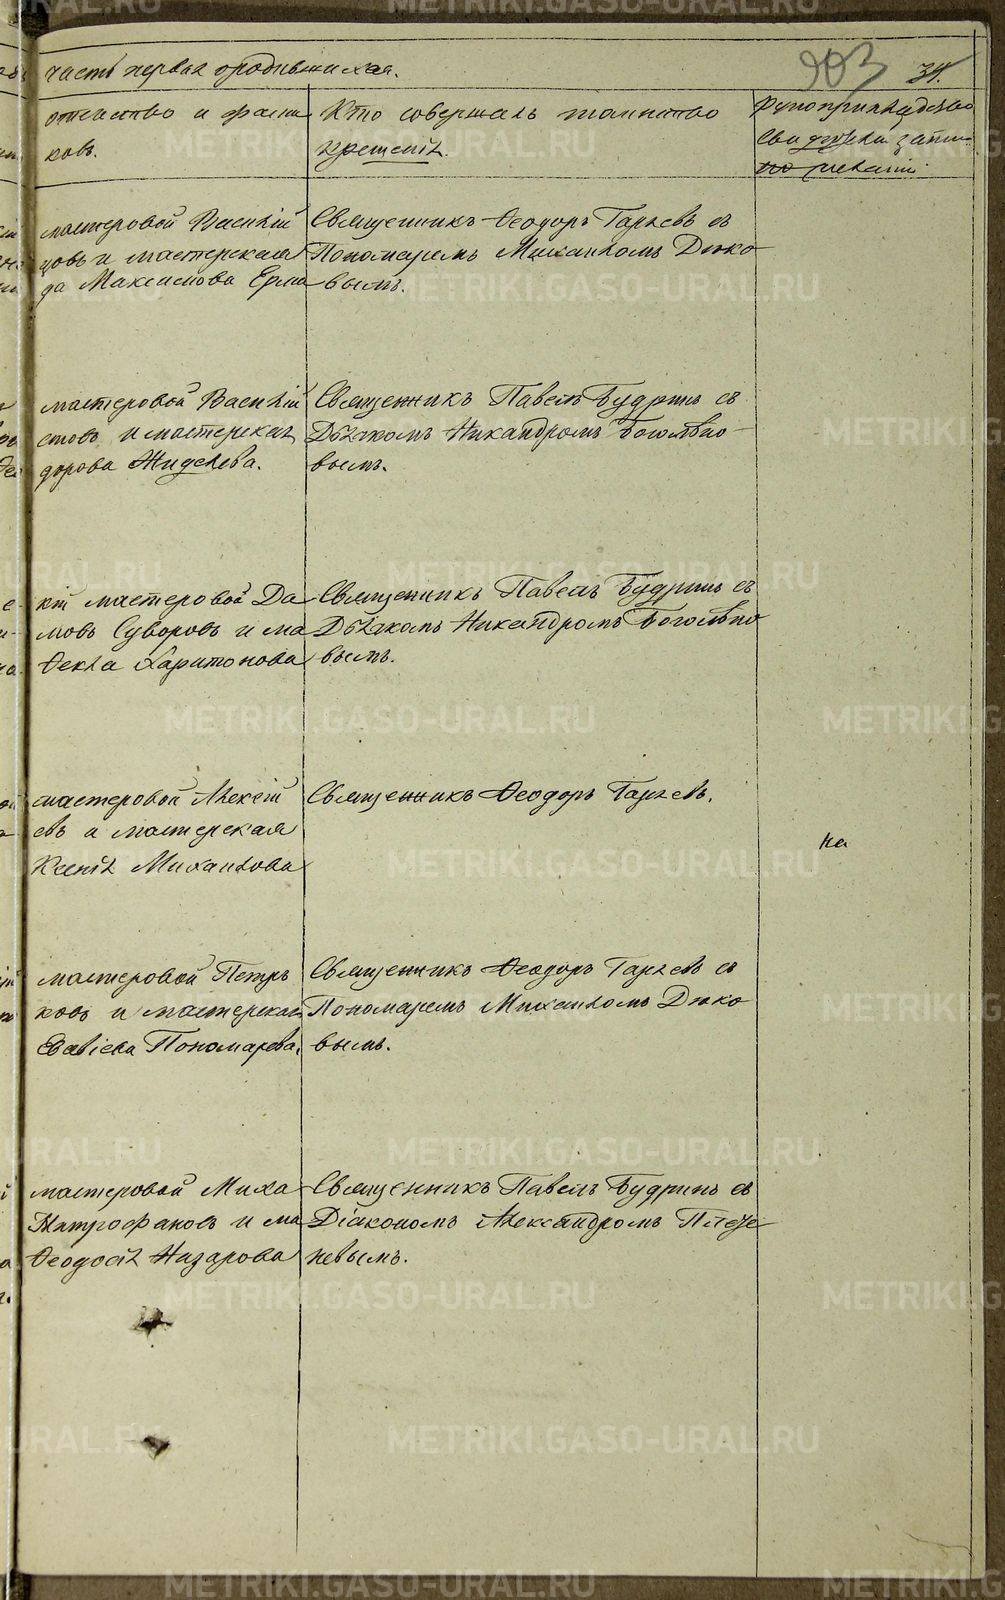 часть первая о родившихся.
903 34.
отечество и фами
ковъ.
Кто совершалъ таинство
крещенія.
Рукоприкладство
свидѣтелей записи
по желанію.
мастеровой Василій
цовъ и мастерская
да Максимова Ерма
Священникъ Феодоръ Гаряевъ съ
Пономаремъ Михаиломъ Дюко
вымъ.
мастеровой Василій
стовъ и мастерская
дорова Жиделева.
Священникъ Павелъ Будринъ съ
Дьячкомъ Никандромъ Боголѣпо
вымъ.
кій мастеровой Да
мовъ Суворовъ и ма
Фекла Харитонова
Священникъ Павелъ Будринъ съ
Дьячкомъ Никандромъ Боголѣпо
вымъ.
мастеровой Алексѣй
евъ и мастерская
Ксенія Михаилова
Священникъ Феодоръ Гаряевъ.
на
мастеровой Петръ
ковъ и мастерская
Евавіева Пономарева.
Священникъ Феодоръ Гаряевъ съ
Пономаремъ Михаиломъ Дюко
вымъ.
мастеровой Миха
Митрофановъ и ма
Феодосія Назарова
Священникъ Павелъ Будринъ съ
Діакономъ Александромъ Плеще
невымъ.
METRIKI.GASO-URAL.RU